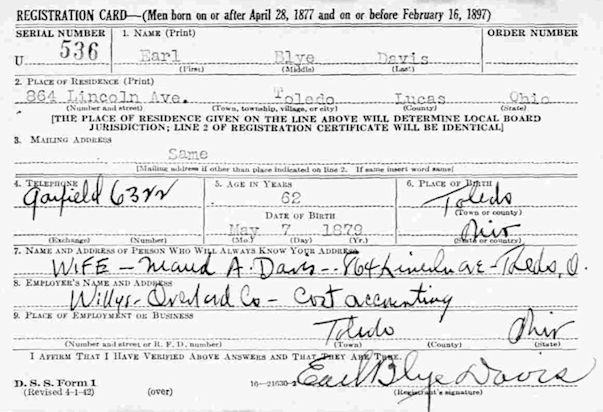 REGISTRATION CARD—(Men born on or after April 28, 1877 and on or before February 16, 1897)
SERIAL NUMBER 1. NAME (Print) ORDER NUMBER
U 536 Earl Blye Davis
(First) (Middle) (Last)
2. PLACE OF RESIDENCE (Print)
864 Lincoln Ave. Toledo Lucas Ohio
(Number and street) (Town, township, village, or city) (County) (State)
[THE PLACE OF RESIDENCE GIVEN ON THE LINE ABOVE WILL DETERMINE LOCAL BOARD
JURISDICTION; LINE 2 OF REGISTRATION CERTIFICATE WILL BE IDENTICAL]
3. MAILING ADDRESS
Same
[Mailing address if other than place indicated on line 2. If same insert word same]
4. TELEPHONE 5. AGE IN YEARS 6. PLACE OF BIRTH
Garfield 6322 62 Toledo
DATE OF BIRTH (Town or county)
May 7 1879 Ohio
(Exchange) (Number) (Mo.) (Day) (Yr.) (State or country)
7. NAME AND ADDRESS OF PERSON WHO WILL ALWAYS KNOW YOUR ADDRESS
WIFE - Maud A. Davis - 864 Lincoln Ave - Toledo, O.
8. EMPLOYER'S NAME AND ADDRESS
Willys-Overland Co - Cost accounting
9. PLACE OF EMPLOYMENT OR BUSINESS
Toledo Ohio
(Number and street or R. F. D. number) (Town) (County) (State)
I AFFIRM THAT I HAVE VERIFIED ABOVE ANSWERS AND THAT THEY ARE TRUE.
Earl Blye Davis
D. S. S. Form 1
(Revised 4-1-42) (over) 16—21630-2 (Registrant's signature)